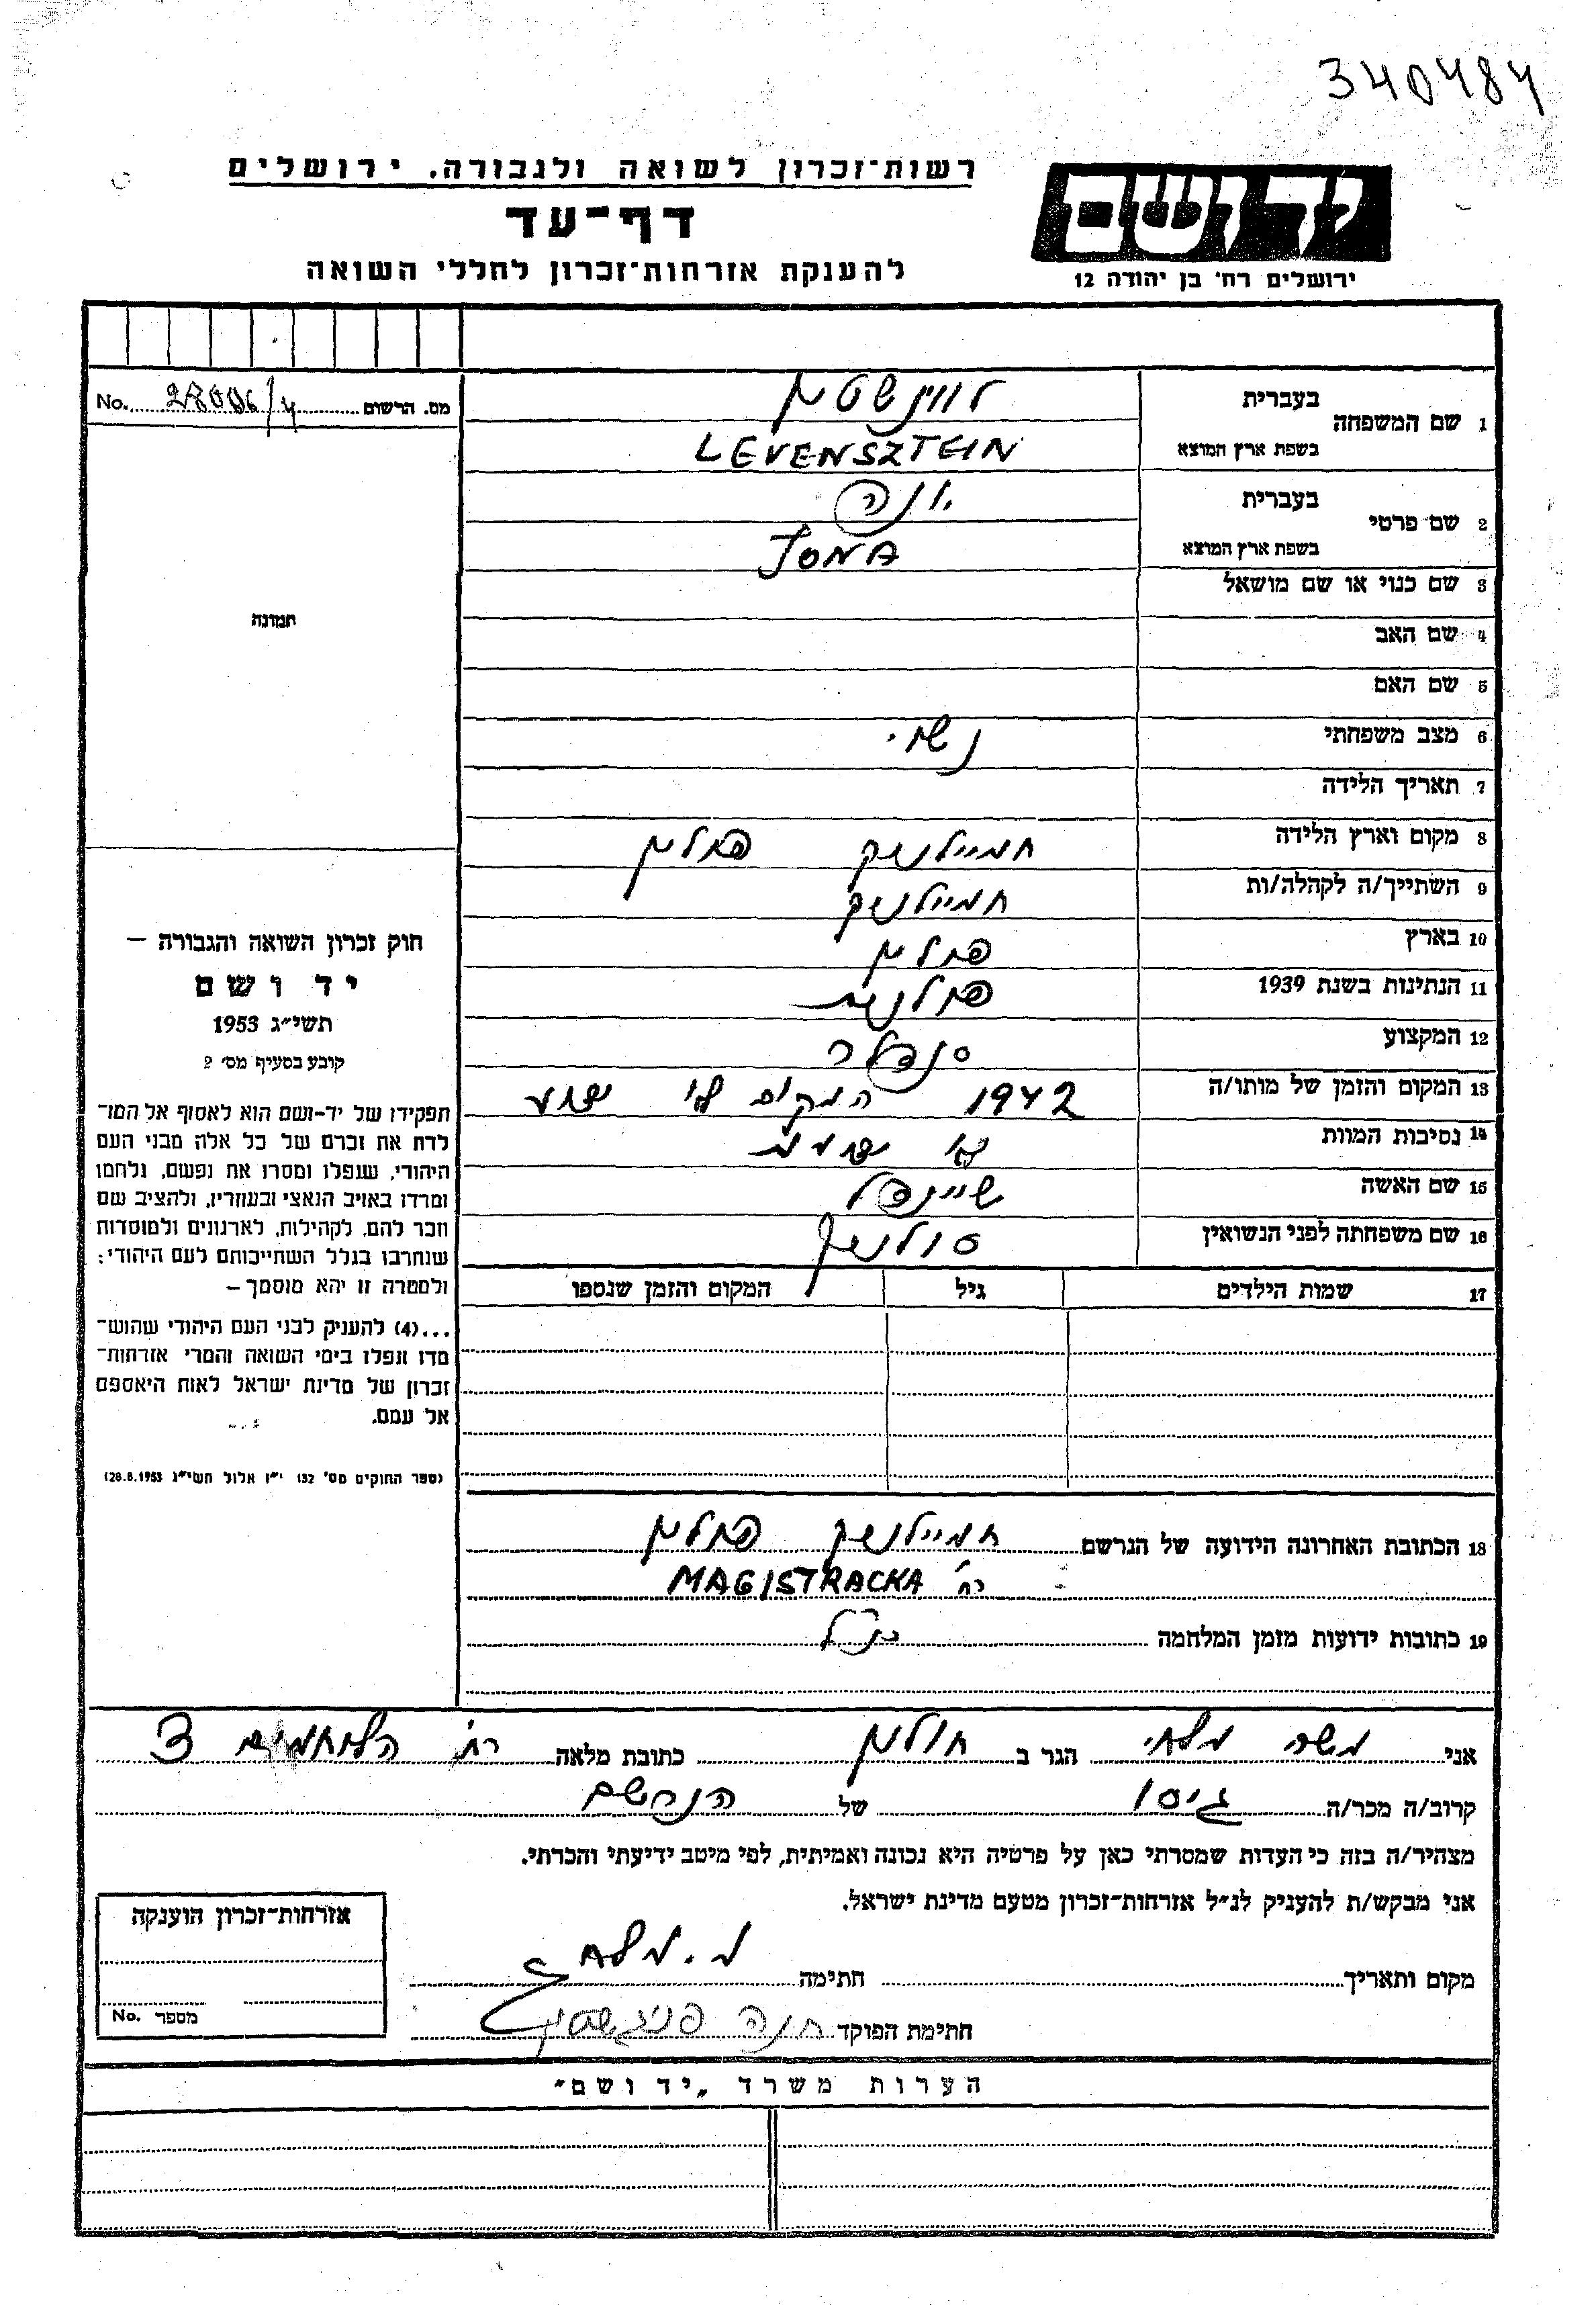 340484
יד ושם
רשות־זכרון לשואה ולגבורה. ירושלים
דף־עד
ירושלים רח' בן יהודה 12
להענקת אזרחות־זכרון לחללי השואה
מס. הרשום No.
1 שם המשפחה בעברית לווינשטיין
בשפת ארץ המוצא LEVENSZTEIN
2 שם פרטי בעברית יונה
בשפת ארץ המוצא JONA
3 שם כנוי או שם מושאל
תמונה
4 שם האב
5 שם האם
6 מצב משפחתי נשוי
7 תאריך הלידה
8 מקום וארץ הלידה חמיילניק פולין
9 השתייך/ה לקהלה/ות חמיילניק
10 בארץ פולין
11 הנתינות בשנת 1939 פולנית
12 המקצוע סנדלר
13 המקום והזמן של מותו/ה 1942 המקום לא ידוע
14 נסיבות המוות
15 שם האשה שיינדל
16 שם משפחתה לפני הנשואין
17 שמות הילדים גיל המקום והזמן שנספו
חוק זכרון השואה והגבורה —
יד ושם
תשי״ג 1953
קובע בסעיף מס׳ 2
תפקידו של יד-ושם הוא לאסוף אל המו־
לדת את זכרם של כל אלה מבני העם
היהודי, שנפלו ומסרו את נפשם, נלחמו
ומרדו באויב הנאצי ובעוזריו, ולהציב שם
וזכר להם, לקהילות, לארגונים ולמוסדות
שנחרבו בגלל השתייכותם לעם היהודי;
ולמטרה זו יהא מוסמך —
...(4) להעניק לבני העם היהודי שהוש־
מדו ונפלו בימי השואה והמרי אזרחות־
זכרון של מדינת ישראל לאות היאספם
אל עמם.
(ספר החוקים מס׳ 132 י״ז אלול תשי״ג 28.8.1953)
18 הכתובת האחרונה הידועה של הנרשם חמיילניק פולין
רח' MAGISTRACKA
19 כתובות ידועות מזמן המלחמה כנ״ל
אני משה מלאכי הגר ב חולון כתובת מלאה רח' הלוחמים 3
קרוב/ה מכר/ה גיסו של הנרשם
מצהיר/ה בזה כי העדות שמסרתי כאן על פרטיה היא נכונה ואמיתית, לפי מיטב ידיעתי והכרתי.
אני מבקש/ת להעניק לנ״ל אזרחות־זכרון מטעם מדינת ישראל.
מקום ותאריך חתימה
חתימת הפוקד חנה
אזרחות־זכרון הוענקה
מספר No.
הערות משרד „יד ושם״